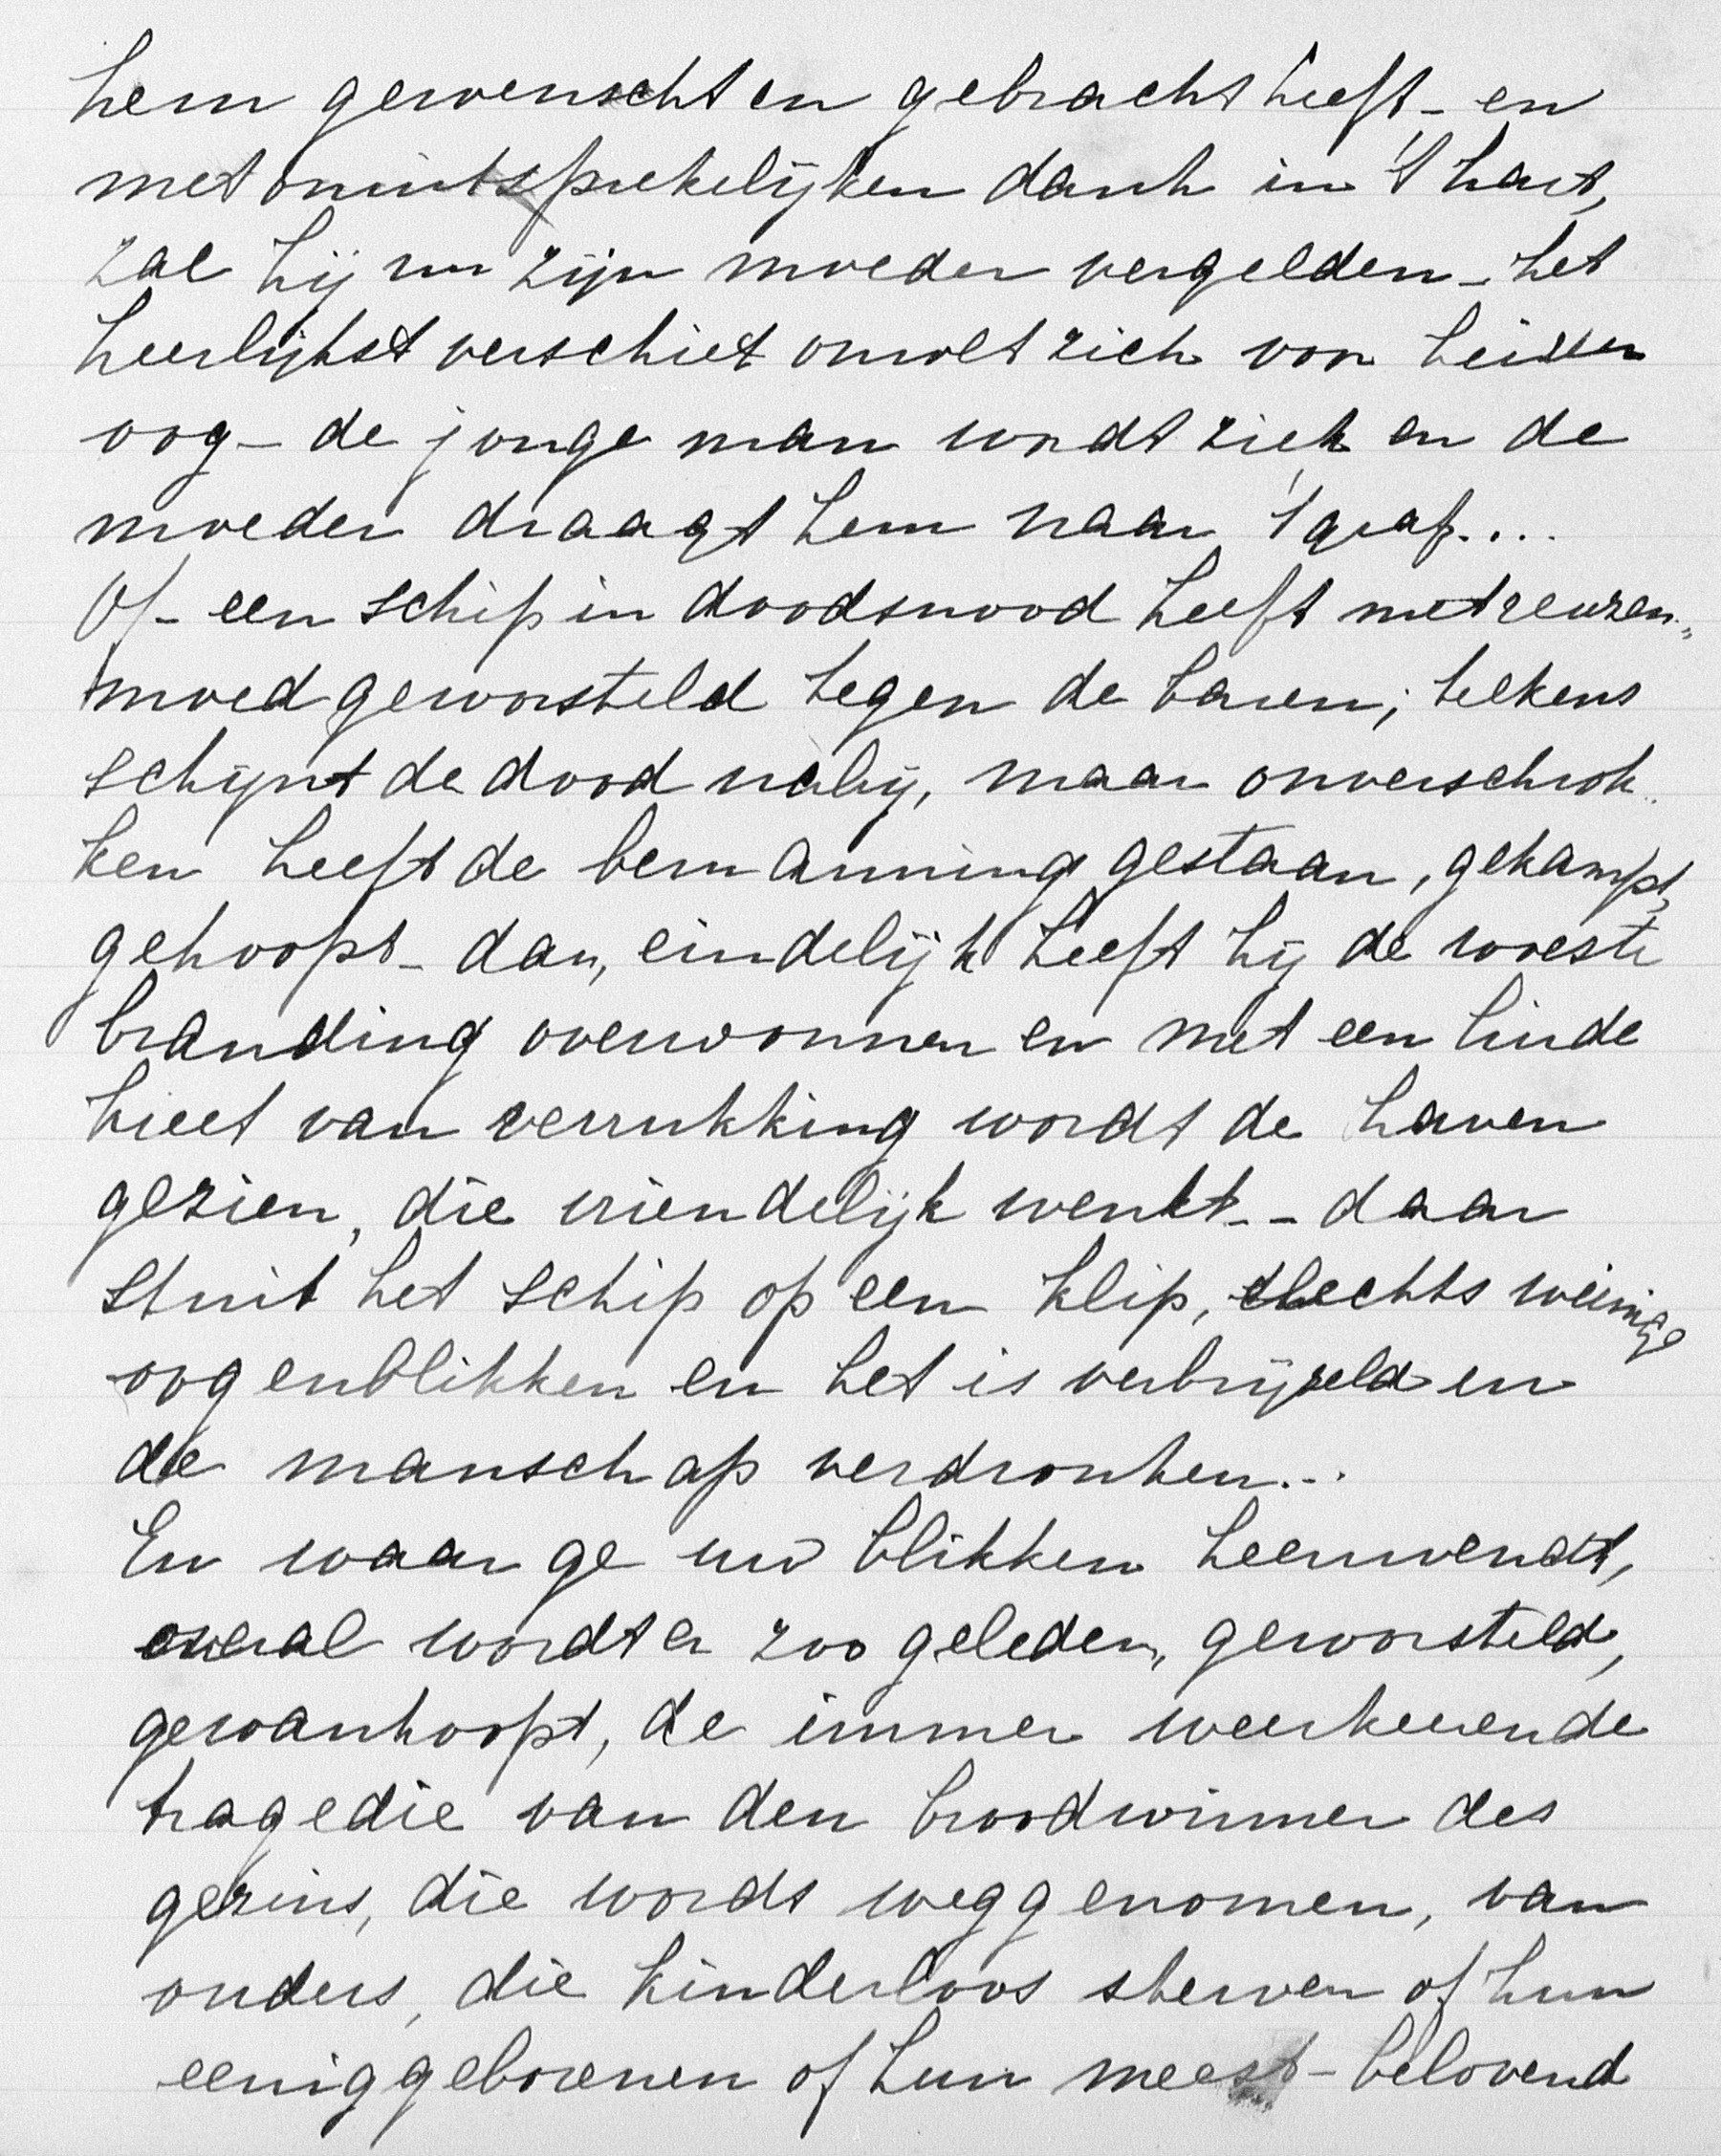 hem gewenscht en gebracht heeft – en
met onuitsprekelijken dank in 't hart,
zal hij nu zijn moeder vergelden – het
heerlijkst verschiet onrolt zich voor beider
oog – de jonge man wordt ziek en de
moeder draagt hem naar 't graf....
Of – een schip in doodsnood heeft met reuzen„
moed geworsteld tegen de baren; telkens
schijnt de dood nabij, maar onverschrok„
ken heeft de bemanning gestaan, gekampt,
gehoopt – dan, eindelijk heeft hij de woeste
branding overwonnen en met een luide
kreet van verrukking wordt de haven
gezien, die vriendelijk wenkt -- daar
stuit het schip op een klip, slechts weinige
oogenblikken en het is verbrijzeld en
de manschap verdronken...
En waar ge uw blikken heenwendt,
overal wordt er zoo geleden, geworsteld,
gewanhoopt, de immer weerkeerende
tragedie van den broodwinner des
gezins, die wordt weggenomen, van
ouders, die kinderloos sterven of hun
eeniggeborenen of hun meest-belovend